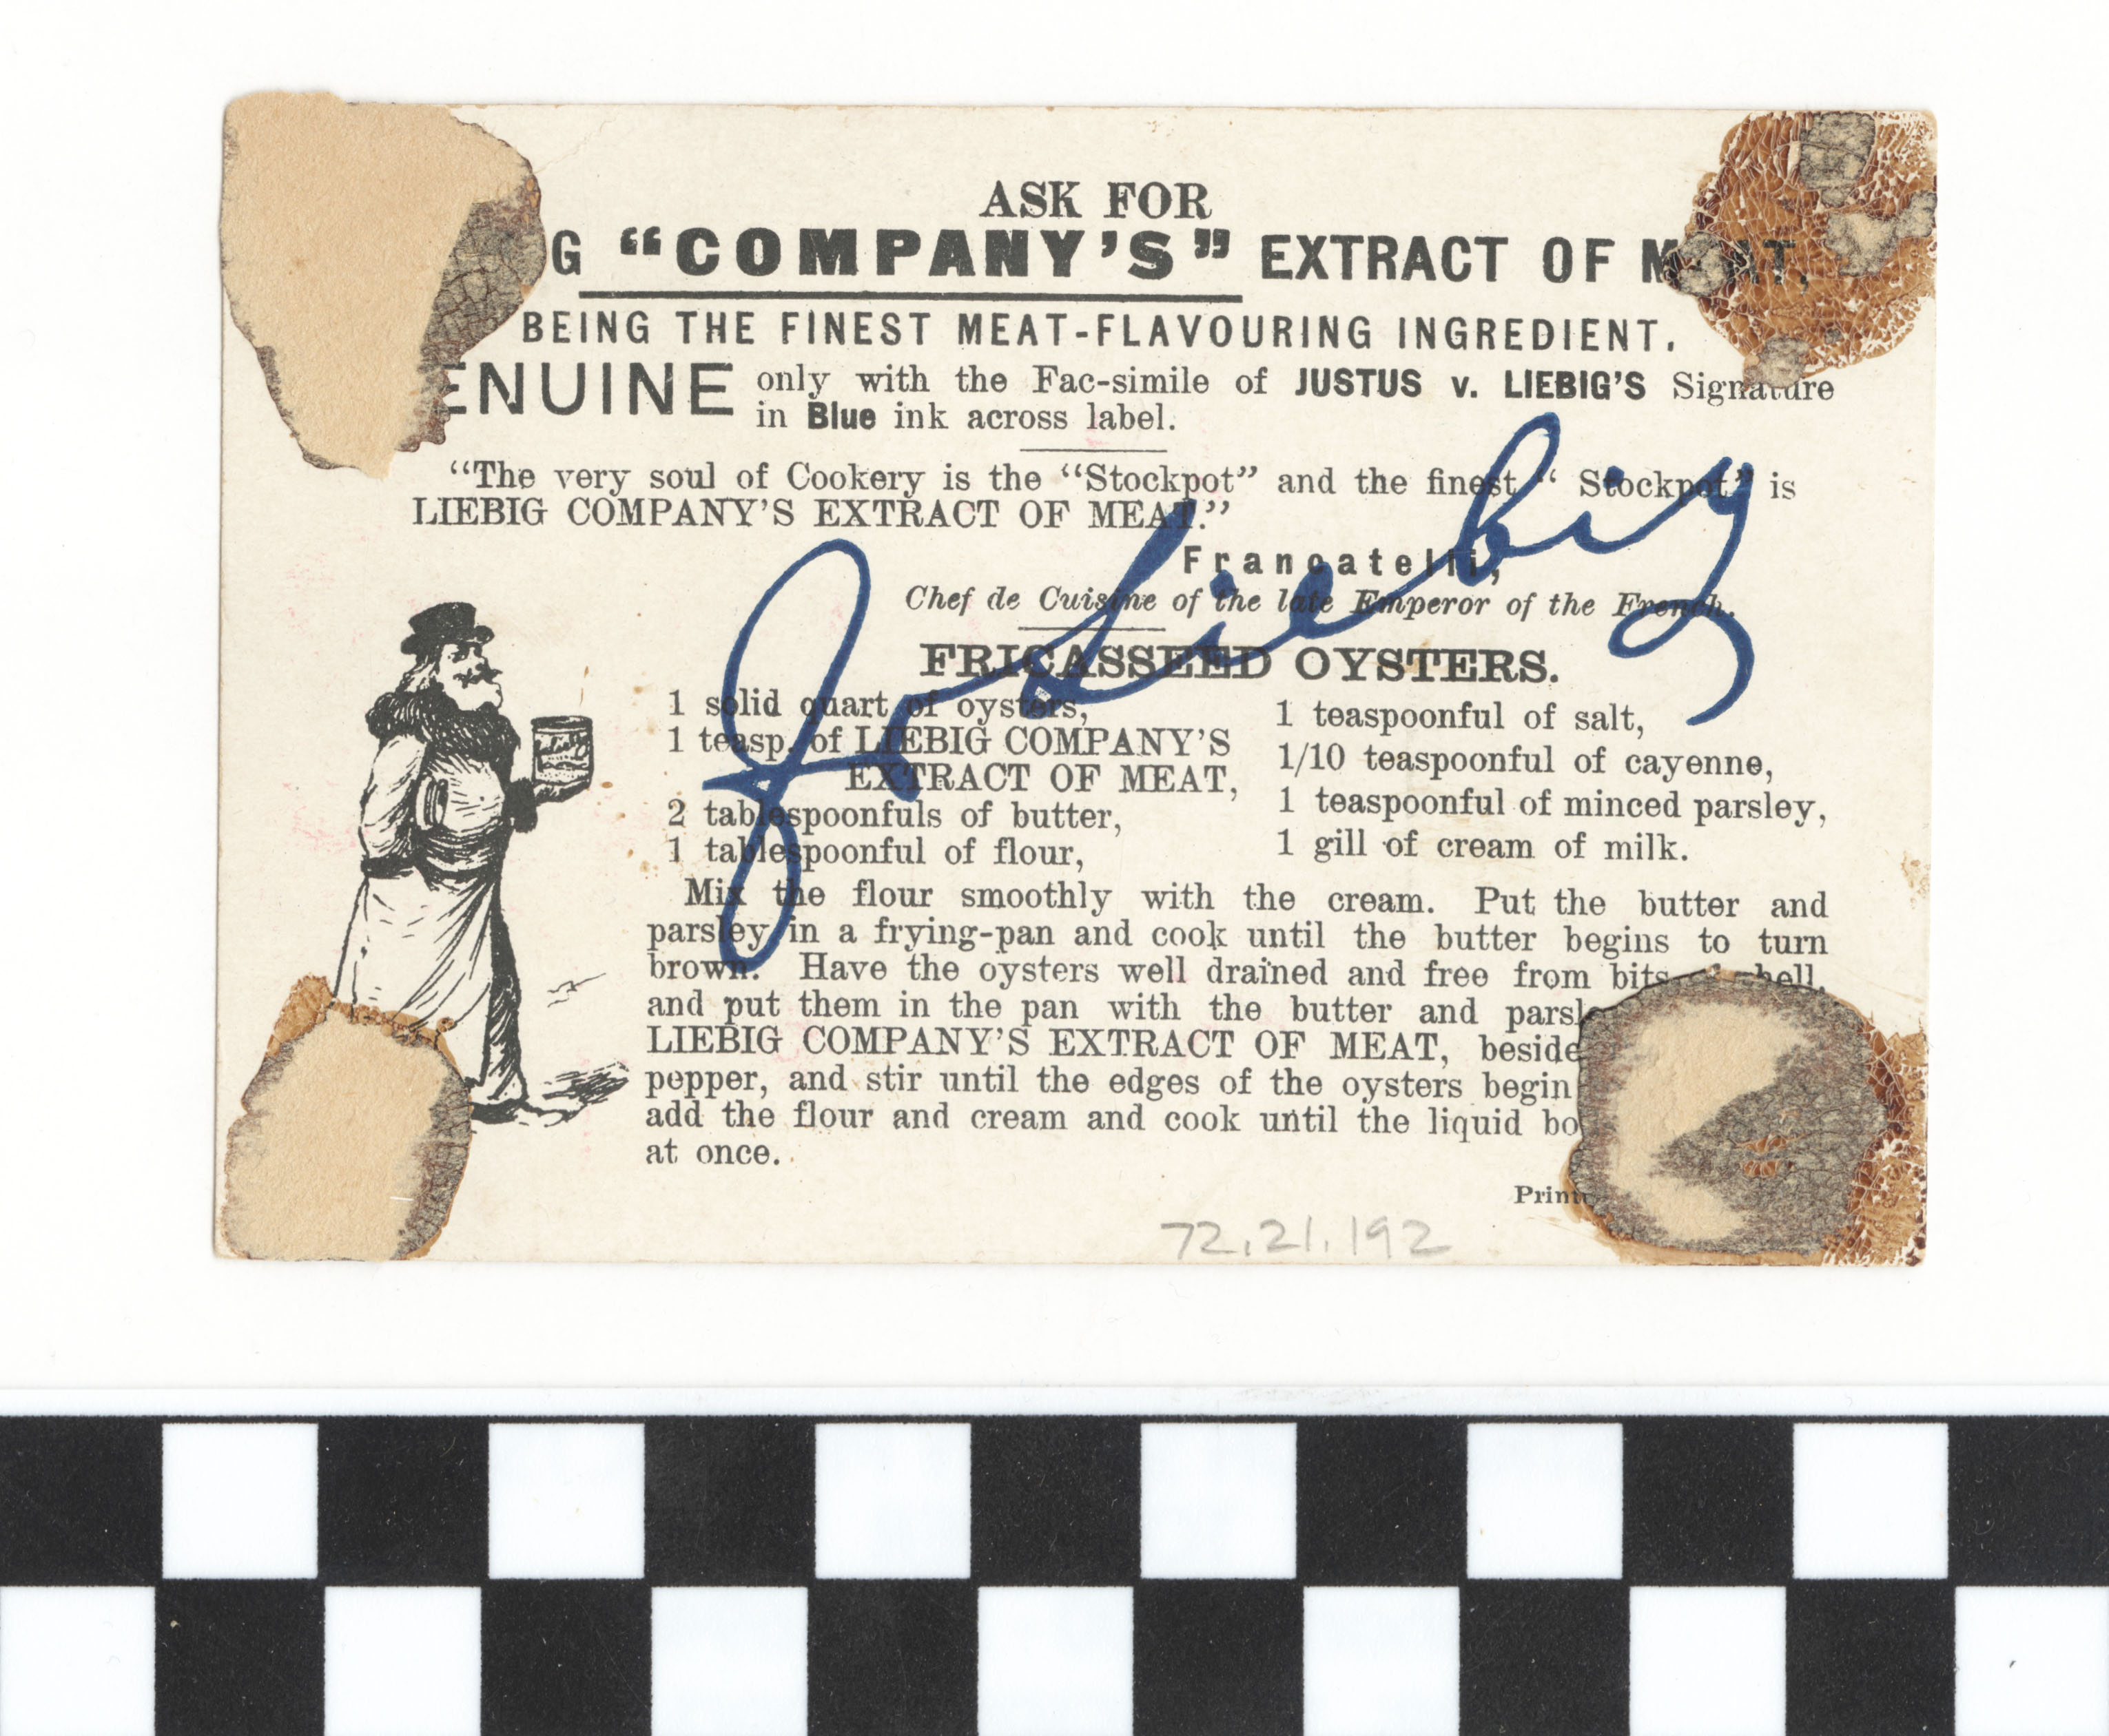 ASK FOR
G “COMPANY’S” EXTRACT OF MEAT,
BEING THE FINEST MEAT-FLAVOURING INGREDIENT.
ENUINE only with the Fac-simile of JUSTUS v. LIEBIG’S Signature
in Blue ink across label.
“The very soul of Cookery is the “Stockpot” and the finest “ Stockpot” is
LIEBIG COMPANY’S EXTRACT OF MEAT.”
Francatelli,
Chef de Cuisine of the late Emperor of the French.
J v Liebig
FRICASSEED OYSTERS.
1 solid quart of oysters,
1 teasp. of LIEBIG COMPANY’S
EXTRACT OF MEAT,
2 tablespoonfuls of butter,
1 tablespoonful of flour,
1 teaspoonful of salt,
1/10 teaspoonful of cayenne,
1 teaspoonful of minced parsley,
1 gill of cream of milk.
Mix the flour smoothly with the cream. Put the butter and
parsley in a frying-pan and cook until the butter begins to turn
brown. Have the oysters well drained and free from bits of shell,
and put them in the pan with the butter and parsl
LIEBIG COMPANY’S EXTRACT OF MEAT, beside
pepper, and stir until the edges of the oysters begin
add the flour and cream and cook until the liquid bo
at once.
Print
72.21.192